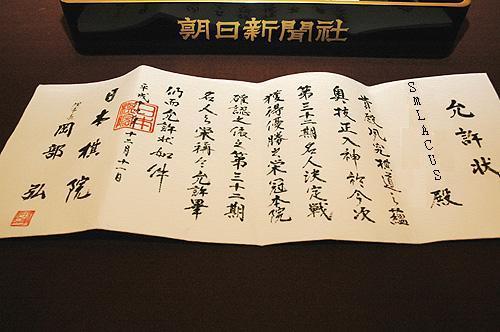 朝日新聞社
允許状
SMLACUS 殿
貴殿夙究棋道之蘊
奥技正入神於今次
第三十二期名人決定戦
獲得優勝之栄冠本院
確認之依之第三十二期
名人之栄称令允許畢
仍而允許状如件
十二月十一日
日本棋院
岡部弘